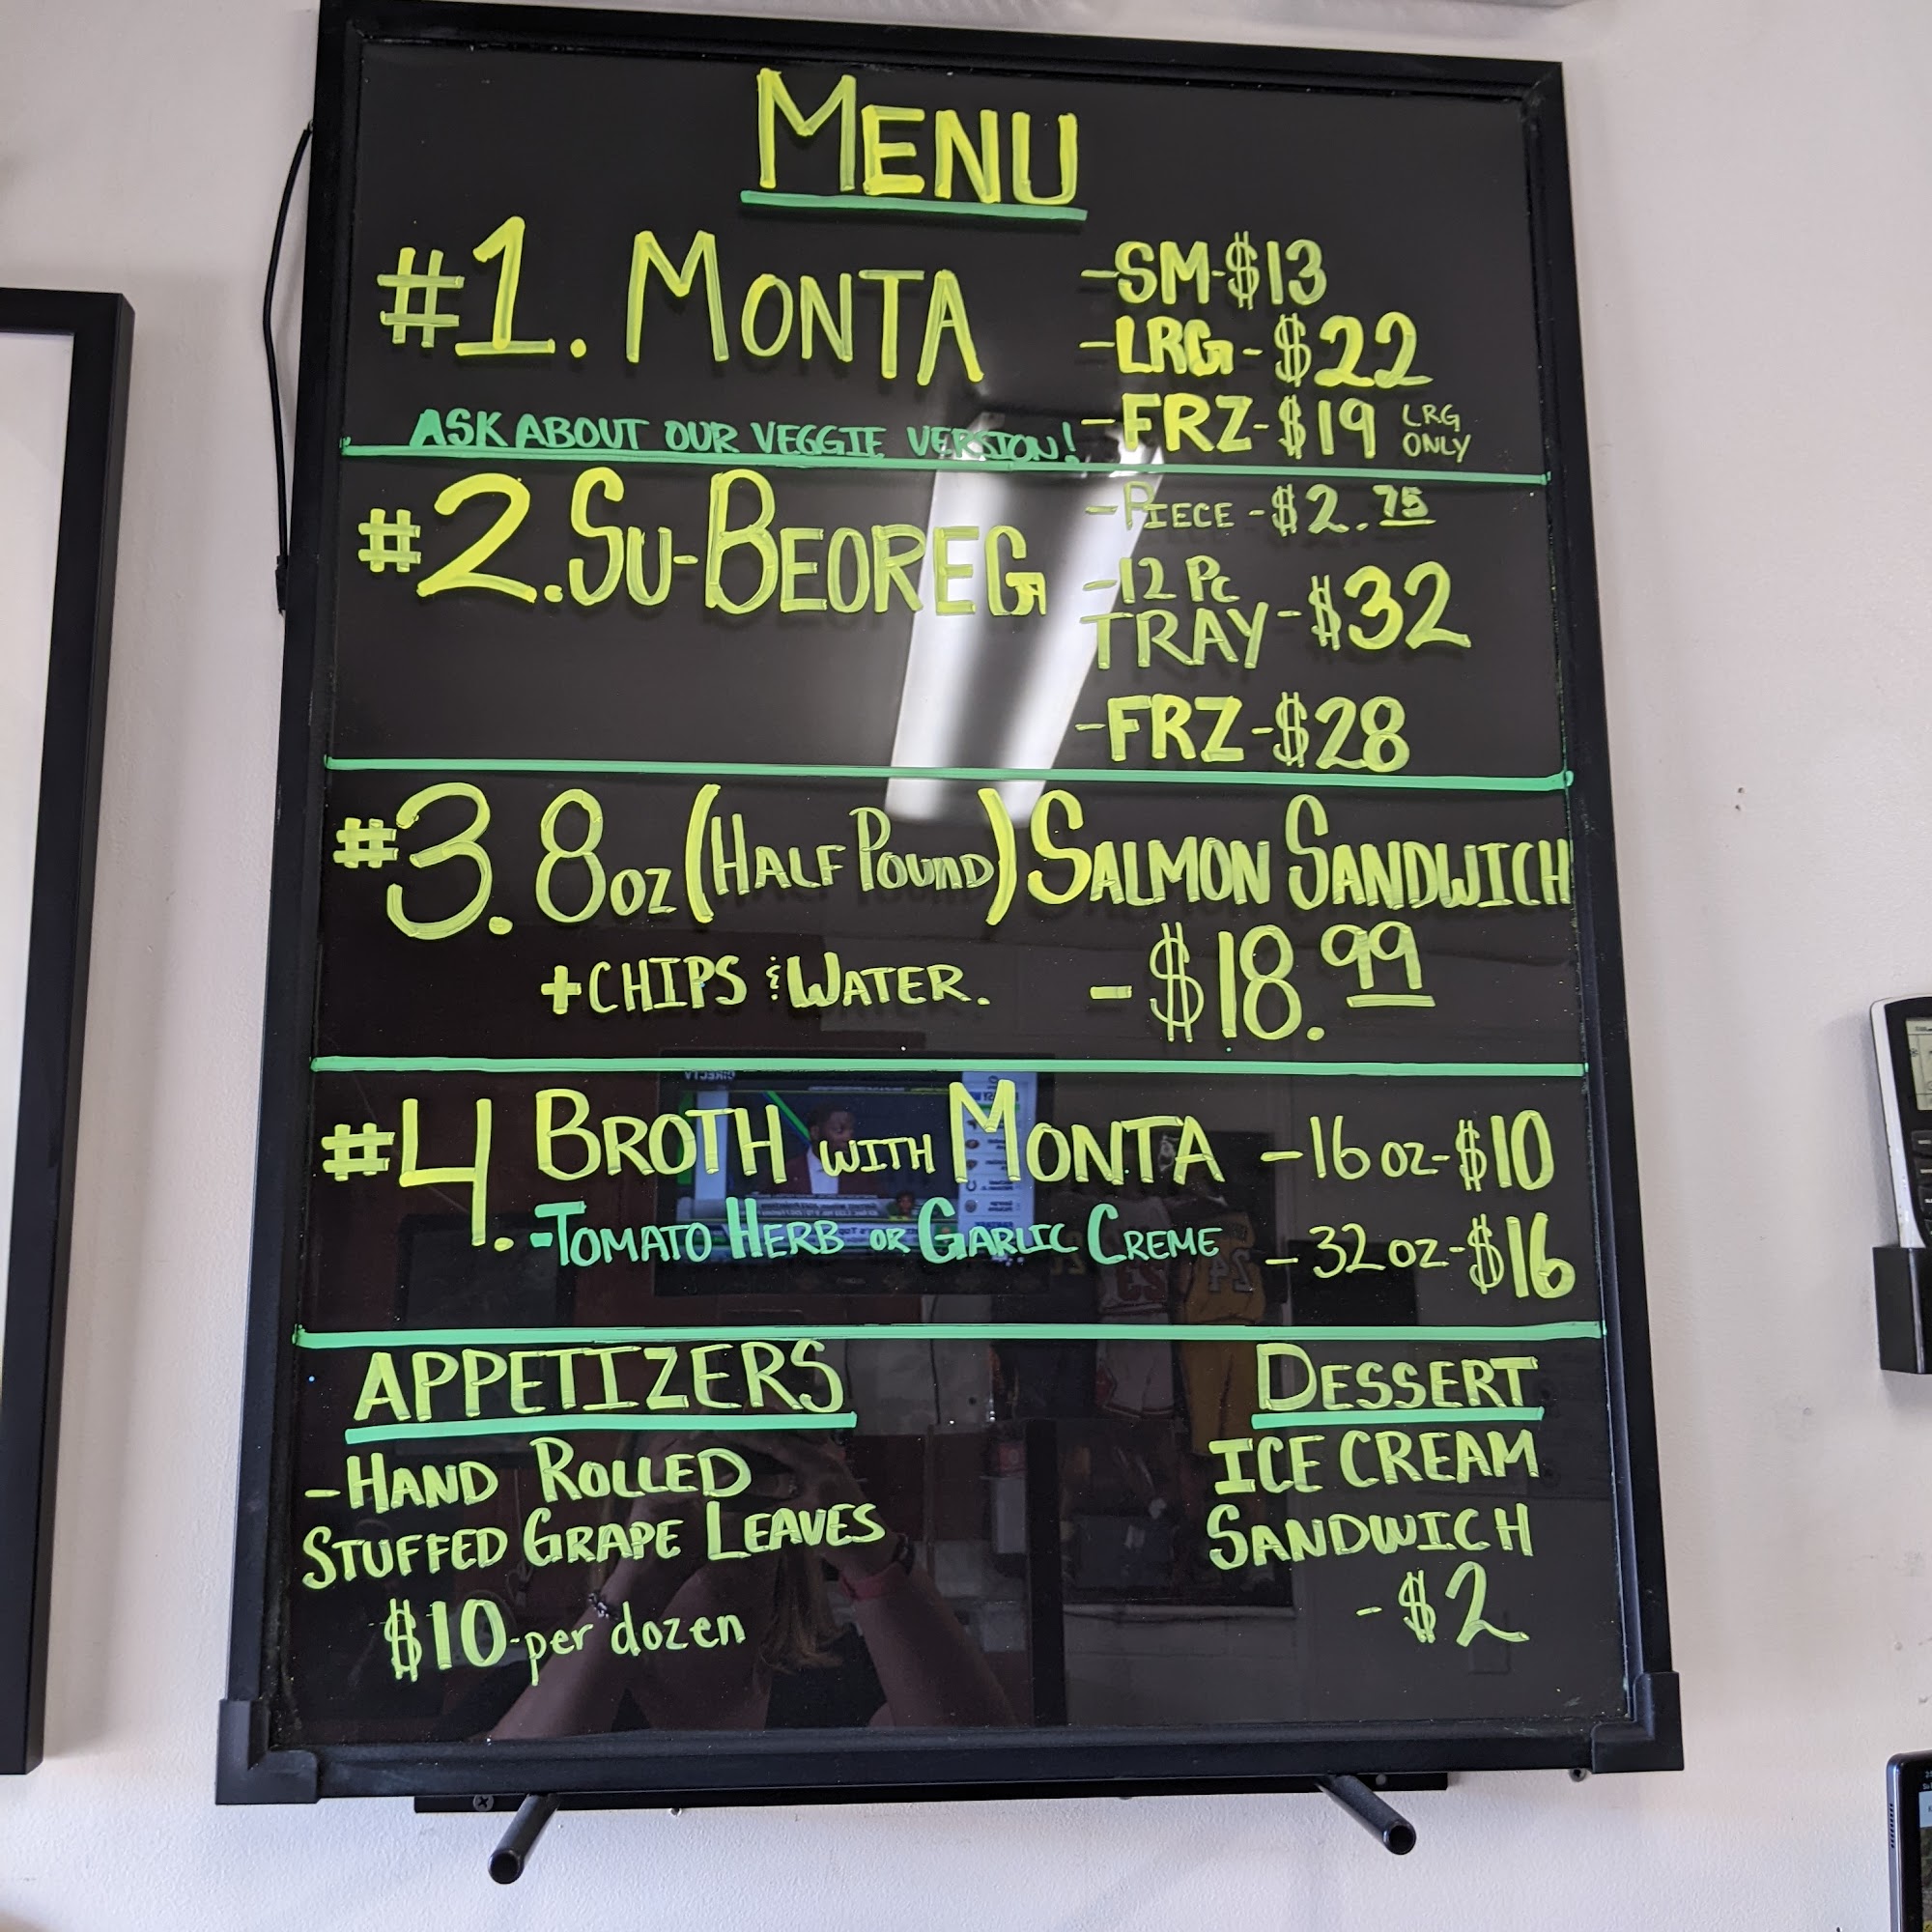 MENU
#1. MONTA
-SM-$13
-LRG-$22
-FRZ-$19 LRG ONLY
ASK ABOUT OUR VEGGIE VERSION!
#2. SU-BEOREG
-PIECE-$2.75
-12 Pc
TRAY-$32
-FRZ-$28
#3. 8oz (HALF POUND) SALMON SANDWICH
+CHIPS & WATER. -$18.99
#4. BROTH WITH MONTA -16 oz-$10
-TOMATO HERB OR GARLIC CREME -32 oz-$16
APPETIZERS
-HAND ROLLED
STUFFED GRAPE LEAVES
$10-per dozen
DESSERT
ICE CREAM
SANDWICH
-$2